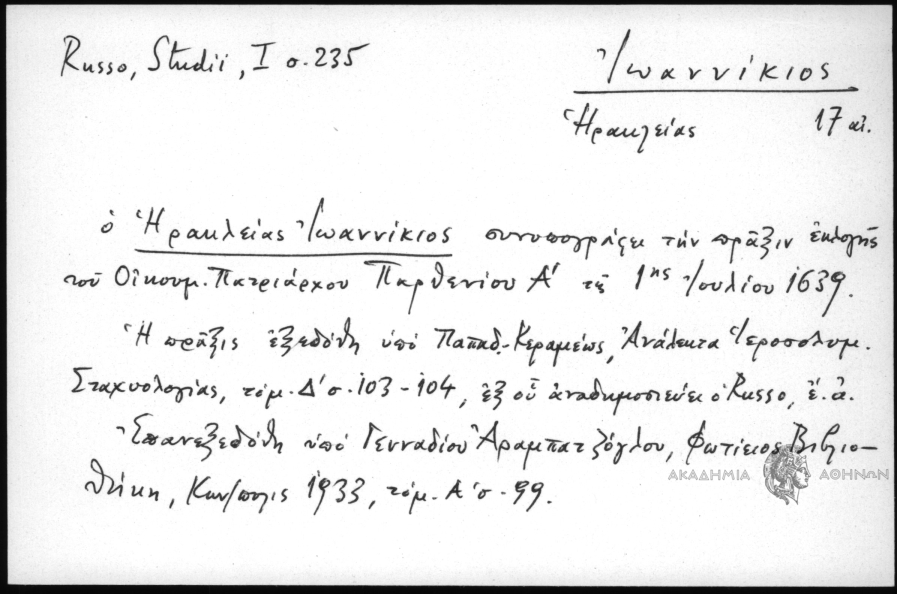 Russo, Studii, I σ. 235
Ἰωαννίκιος
Ἡρακλείας 17 αἰ.
ὁ Ἡρακλείας Ἰωαννίκιος συνυπογράφει τὴν πρᾶξιν ἐκλογῆς
τοῦ Οἰκουμ. Πατριάρχου Παρθενίου Α' τῇ 1ης Ἰουλίου 1639.
Ἡ πρᾶξις ἐξεδόθη ὑπὸ Παπαδ.-Κεραμέως, Ἀνάλεκτα Ἱεροσολυμ.
Σταχυολογίας, τόμ. Δ' σ. 103-104, ἐξ οὗ ἀναδημοσιεύει ὁ Russo, ἔ.ἀ.
Ἐπανεξεδόθη ὑπὸ Γενναδίου Ἀραμπατζόγλου, Φωτίειος Βιβλιο-
θήκη, Κων/πολις 1933, τόμ. Α' σ. 99.
ΑΚΑΔΗΜΙΑ ΑΘΗΝΩΝ